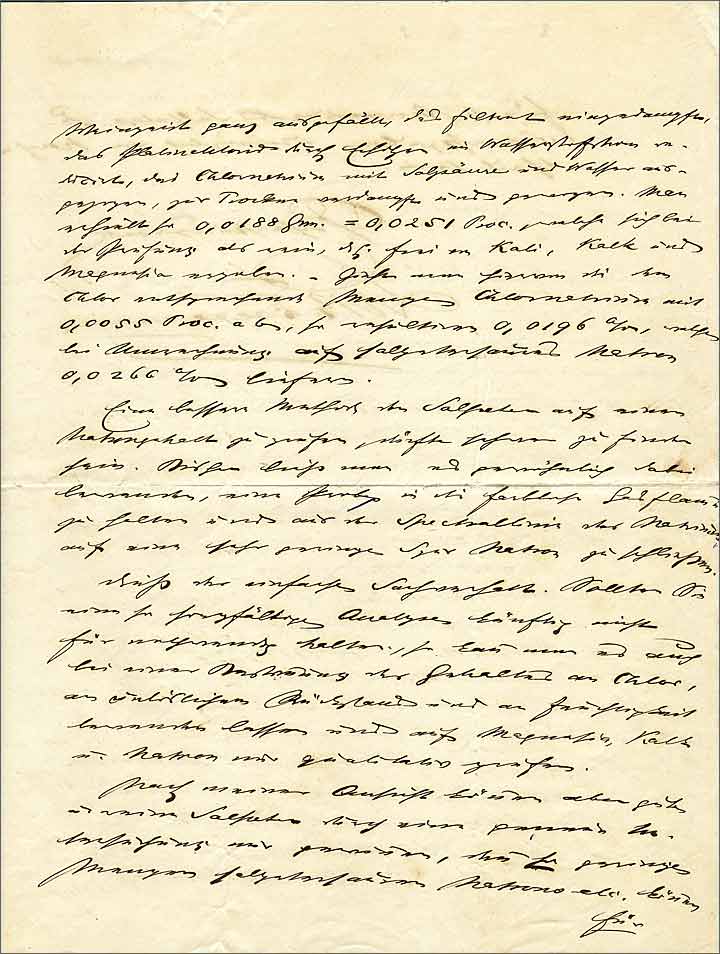 Weingeist ganz ausgefällt, das Filtrat eingedampft,
das Platinchlorid durch Erhitzen im Wasserstoffstrom re-
ducirt, das Chlornatrium mit Salzsäure und Wasser aus-
gezogen, zur Trockne verdampft und gewogen. Man
erhielt so 0,0188 Grm. = 0,0251 Proc., welche sich bei
der Prüfung als rein, d. h. frei von Kali, Kalk und
Magnesia ergaben. – Zieht man hiervon die dem
Chlor entsprechende Menge Chlornatrium mit
0,0055 Proc. ab, so resultiren 0,0196 %, welche
bei Umrechnung auf salpetersaures Natron
0,0266 % liefern.
Eine bessere Methode den Salpeter auf einen
Natrongehalt zu prüfen dürfte schwer zu finden
sein. Bisher ließ man es gewöhnlich dabei
bewenden, eine Probe in die farblose Gasflamme
zu halten und aus der Spectrallinie des Natriums
auf eine sehr geringe Spur Natron zu schließen.
Dieß der einfache Sachverhalt. Sollten Sie
eine so sorgfältige Analyse künftig nicht
für nothwendig halten, so kann man es auch
bei einer Bestimmung des Gehaltes an Chlor,
an unlöslichem Rückstand und an Feuchtigkeit
bewenden lassen und auf Magnesia, Kalk
u. Natron nur qualitativ prüfen.
Nach meiner Ansicht können aber gute
u. reine Salpeter durch eine genaue Un-
tersuchung nur gewinnen, denn so geringe
Mengen salpetersauren Natrons etc. können
für